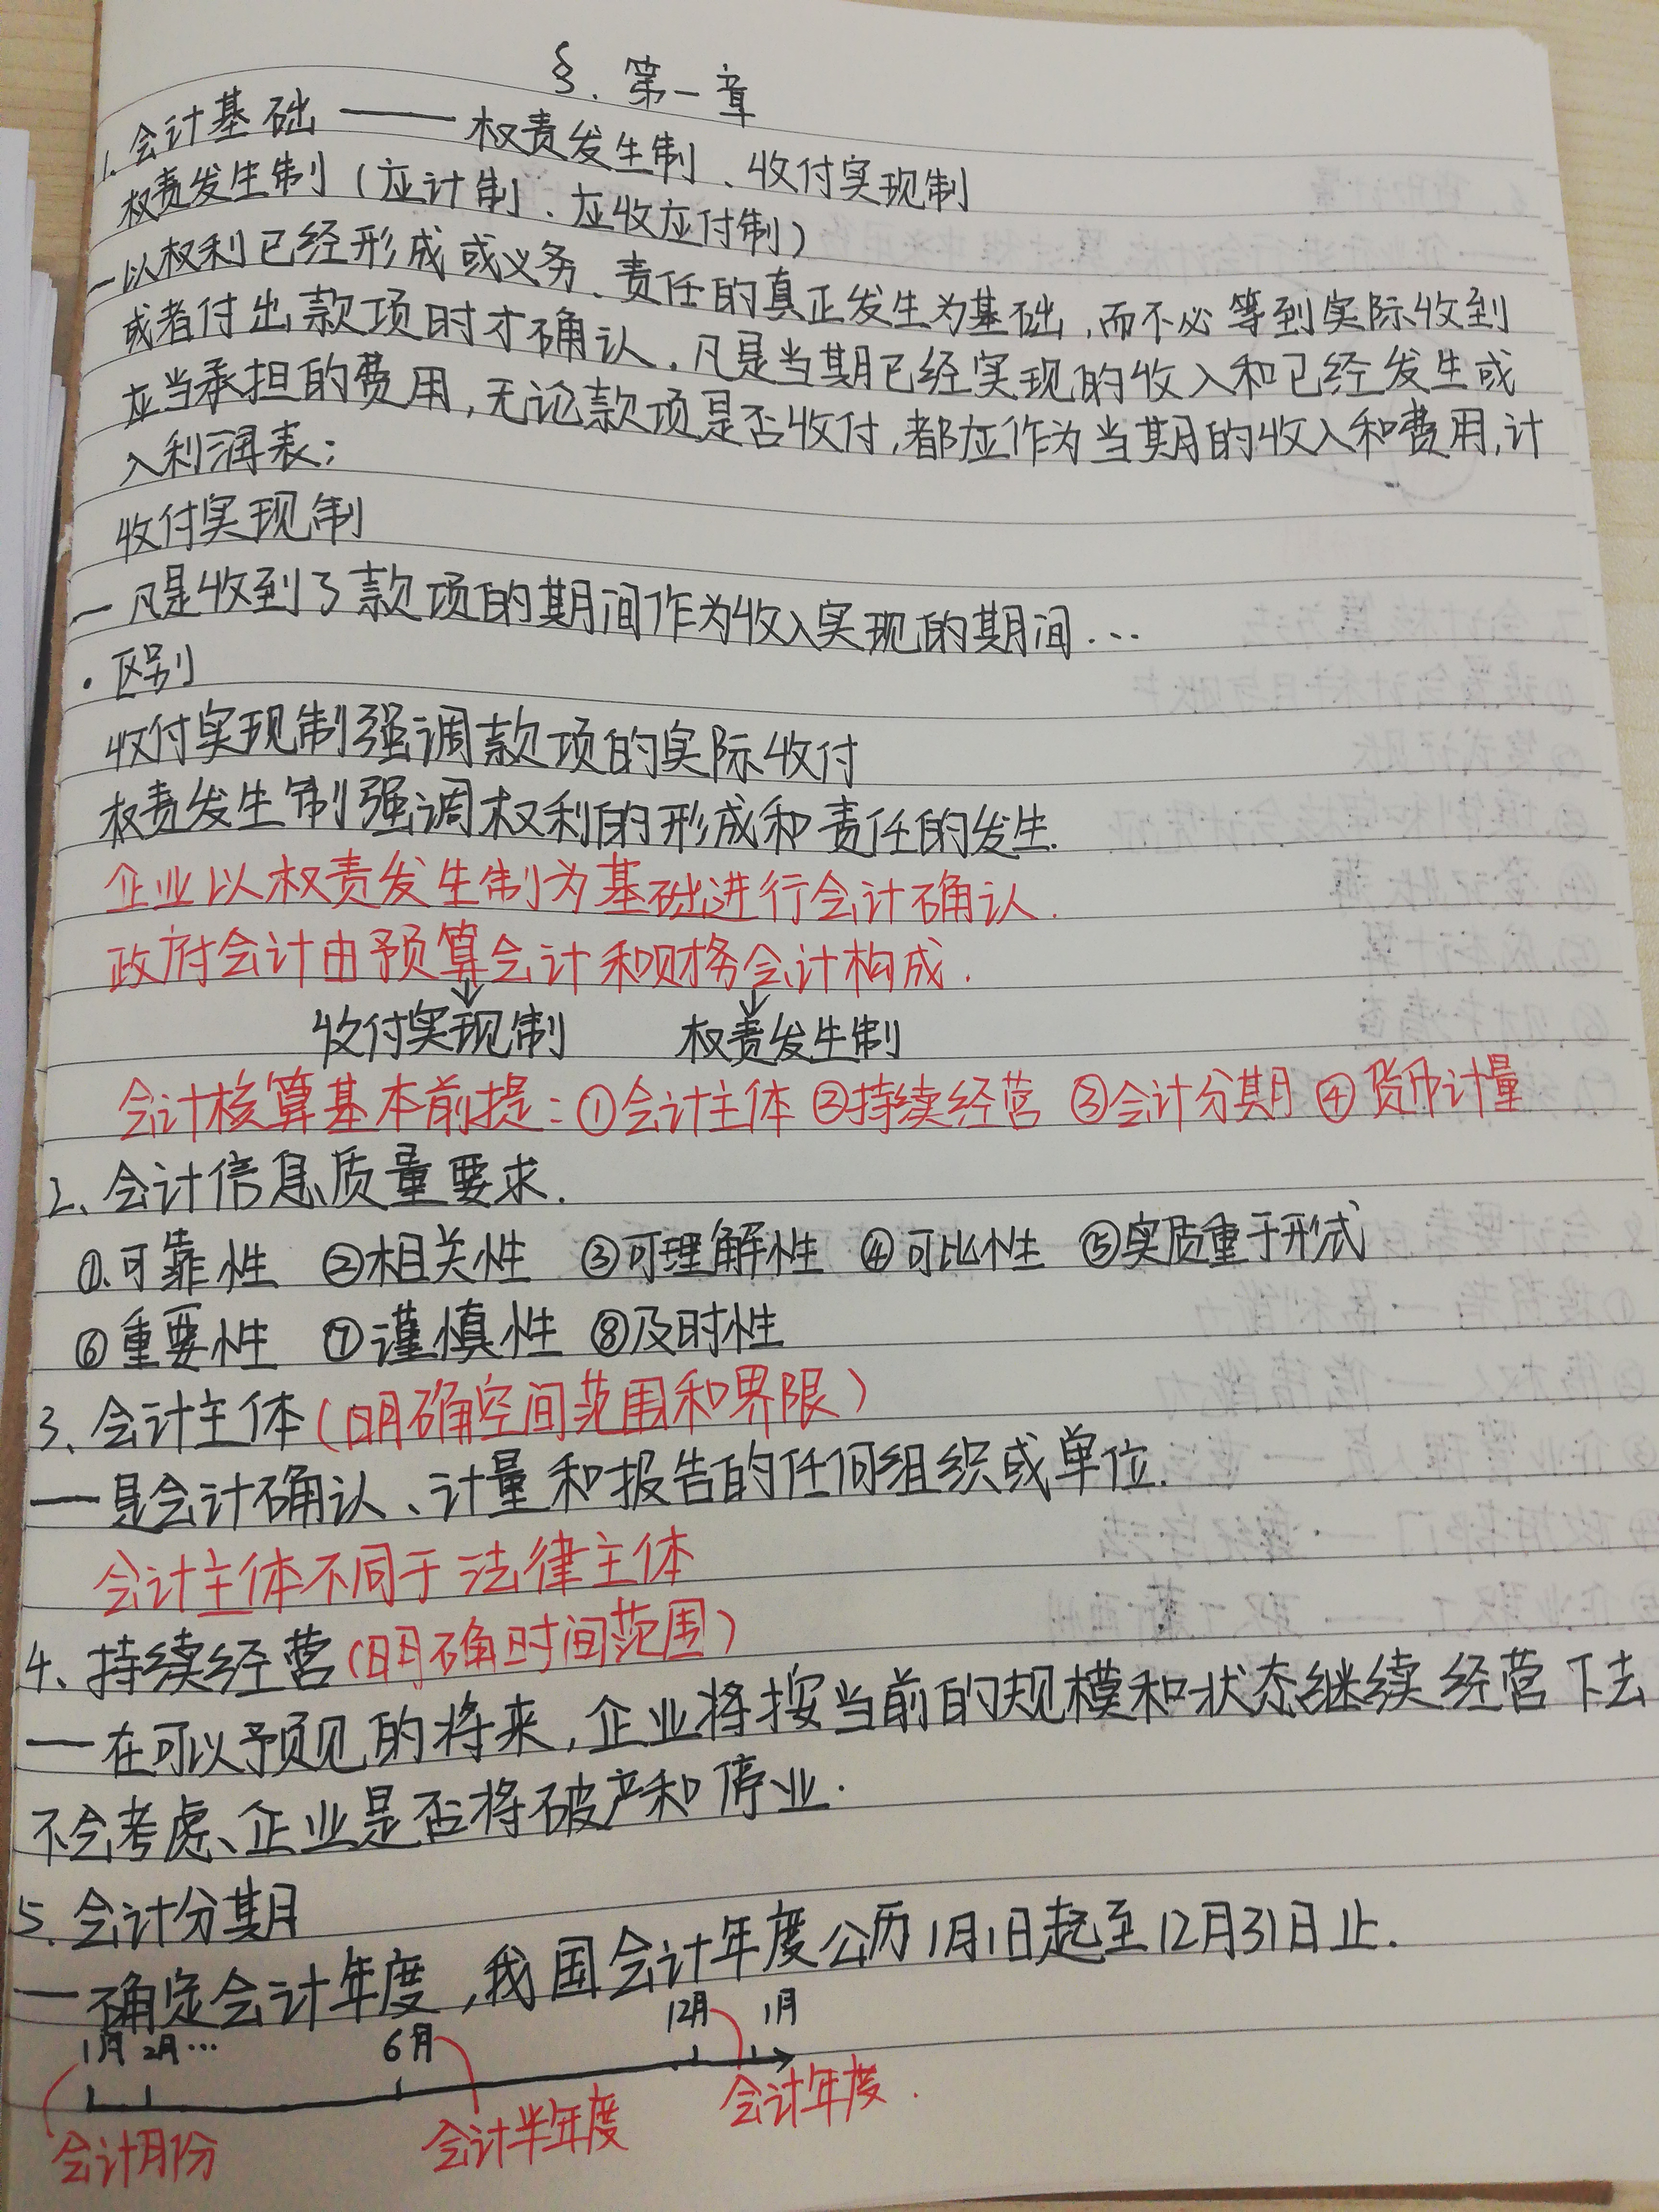 §. 第一章
1. 会计基础 —— 权责发生制、收付实现制
权责发生制（应计制、应收应付制）
—以权利已经形成或义务、责任的真正发生为基础,而不必等到实际收到
或者付出款项时才确认.凡是当期已经实现的收入和已经发生或
应当承担的费用,无论款项是否收付,都应作为当期的收入和费用,计
入利润表;
收付实现制
—凡是收到了款项的期间作为收入实现的期间...
·区别
收付实现制强调款项的实际收付
权责发生制强调权利的形成和责任的发生.
企业以权责发生制为基础进行会计确认.
政府会计由预算会计和财务会计构成.
↓ ↓
收付实现制 权责发生制
会计核算基本前提:①会计主体 ②持续经营 ③会计分期 ④货币计量
2、会计信息质量要求.
①.可靠性 ②相关性 ③可理解性 ④可比性 ⑤实质重于形式
⑥重要性 ⑦谨慎性 ⑧及时性
3、会计主体(明确空间范围和界限)
——是会计确认、计量和报告的任何组织或单位.
会计主体不同于法律主体
4、持续经营(明确时间范围)
——在可以预见的将来,企业将按当前的规模和状态继续经营下去
不会考虑、企业是否将破产和停业.
5.会计分期
——确定会计年度,我国会计年度公历1月1日起至12月31日止.
1月 2月... 6月 12月 1月
会计月份 会计半年度 会计年度.